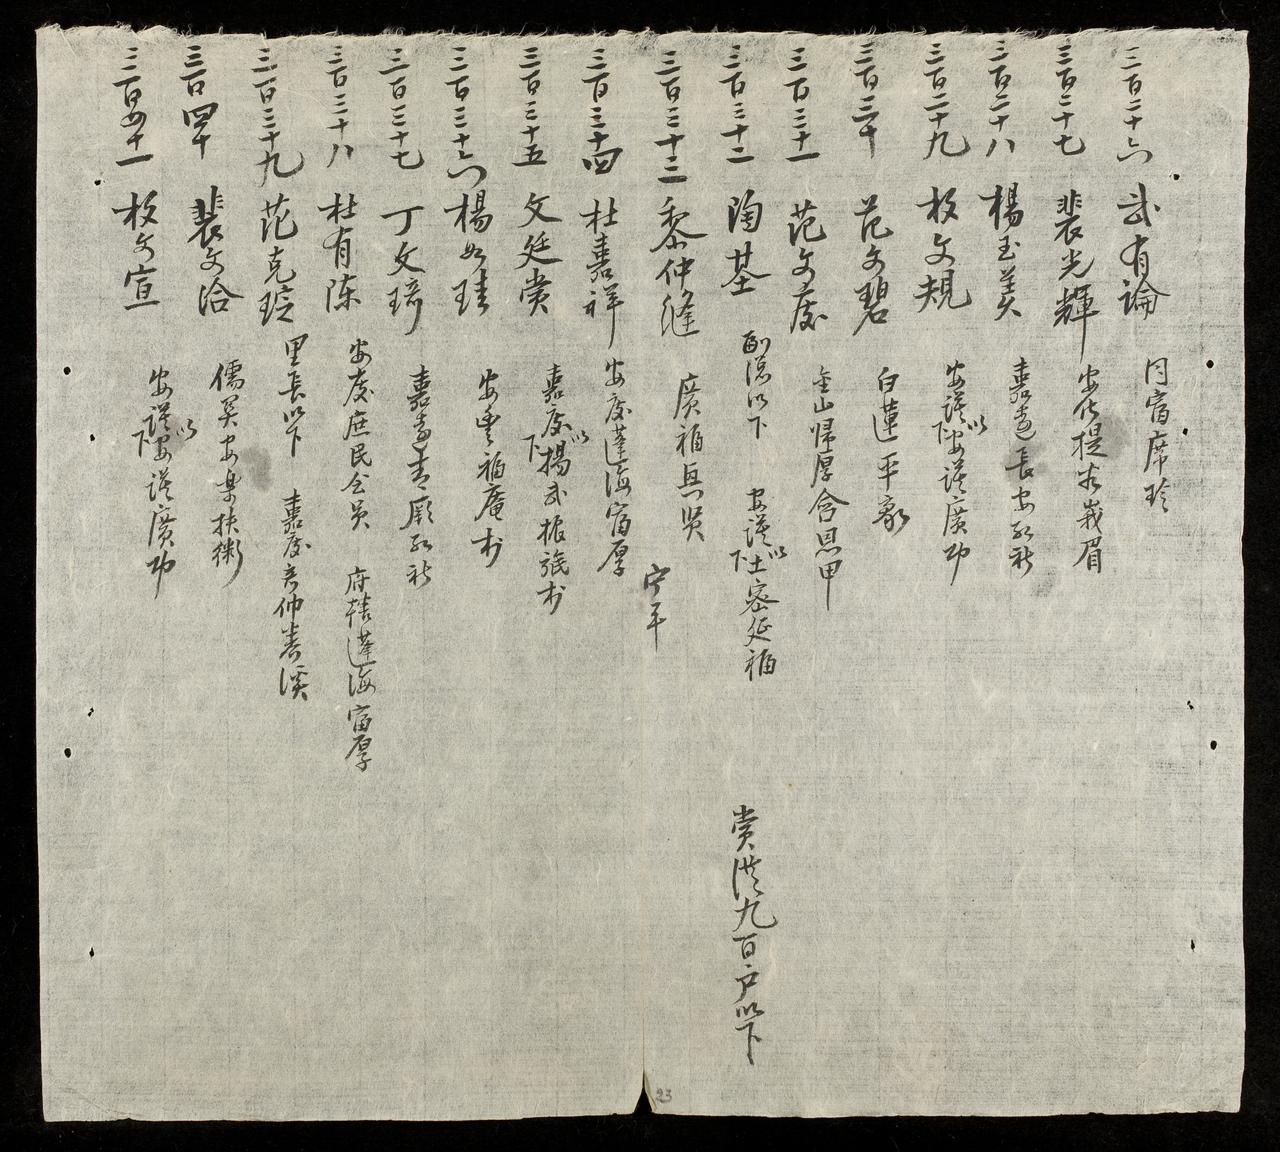 三百二十六 武有論 同富席珍
三百二十七 裴光輝 安化提岩峩眉
三百二十八 楊玉美 嘉遠長安 社
三百二十九 枚文規 安謨以下安謨廣功
三百三十 范文碧 白蓮平
三百三十一 范文度 金山歸厚含 甲
三百三十二 陶基 副 以下 安謨以下土密延福 賞 九百戶以下
三百三十三 黎仲縫 廣福 賢 寧平
三百三十四 杜嘉祥 安度蓬海富厚
三百三十五 文廷賞 嘉度以下楊武振 村
三百三十六 楊 安 福庵村
三百三十七 丁文琦 嘉 社
三百三十八 杜有陳 安度庶民 員 府轄蓬海富厚
三百三十九 范克琔 里長以下 嘉度 仲 溪
三百四十 裴文洽 儒 安樂扶
三百四十一 枚文宣 安謨以下安謨廣功
23